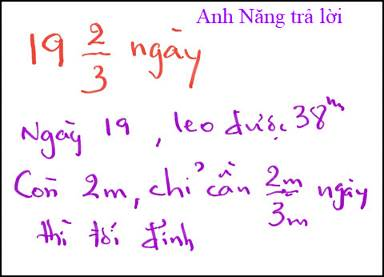 Anh Năng trả lời
19 2/3 ngày
Ngày 19, leo được 38m
Còn 2m, chỉ cần 2m/3m ngày
thì tới đỉnh